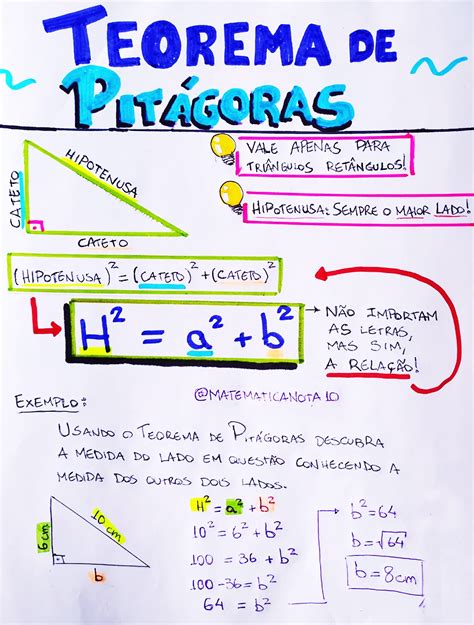 TEOREMA DE
PITÁGORAS
VALE APENAS PARA
TRIÂNGULOS RETÂNGULOS!
HIPOTENUSA: SEMPRE O MAIOR LADO!
HIPOTENUSA
CATETO
CATETO
(HIPOTENUSA)² = (CATETO)² + (CATETO)²
H² = a² + b²
→ NÃO IMPORTAM
AS LETRAS,
MAS SIM,
A RELAÇÃO!
@MATEMATICANOTA10
EXEMPLO:
USANDO O TEOREMA DE PITÁGORAS DESCUBRA
A MEDIDA DO LADO EM QUESTÃO CONHECENDO A
MEDIDA DOS OUTROS DOIS LADOS.
6cm
10 cm
b
H² = a² + b²
10² = 6² + b²
100 = 36 + b²
100-36 = b²
64 = b²
b² = 64
b = √64
b = 8cm